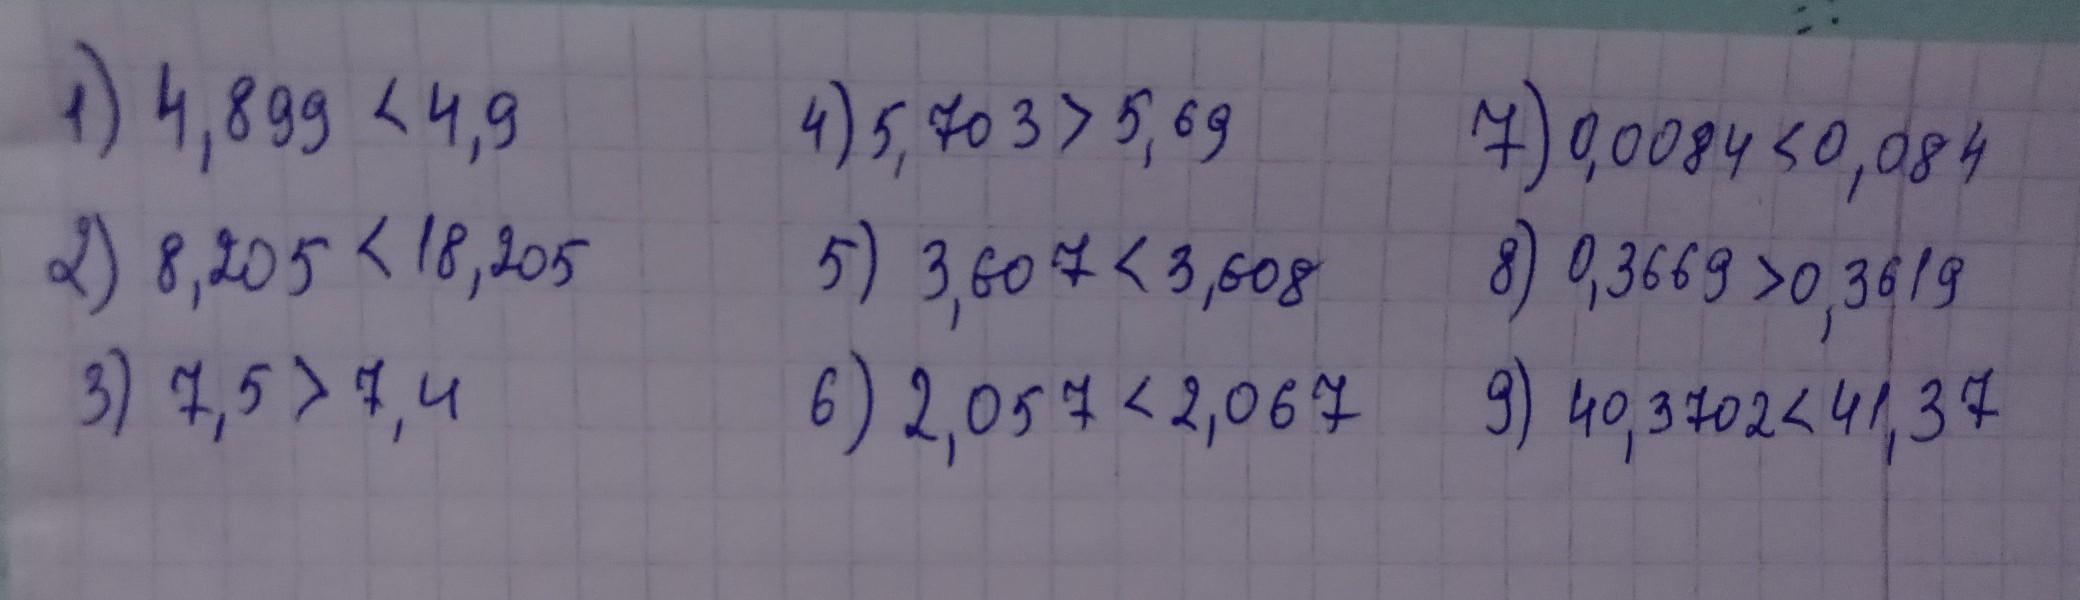 1) 4,899 < 4,9
2) 8,205 < 18,205
3) 7,5 > 7,4
4) 5,703 > 5,69
5) 3,607 < 3,608
6) 2,057 < 2,067
7) 0,0084 < 0,084
8) 0,3669 > 0,3619
9) 40,3702 < 41,37